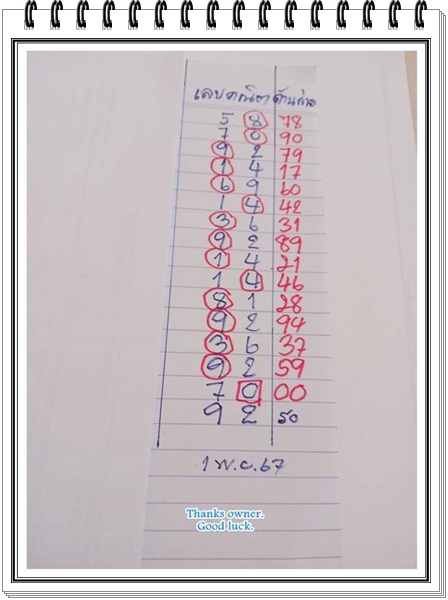 เลขคณิต ด้านล่าง
5 8 78
7 0 90
9 2 79
1 4 17
6 9 60
1 4 42
3 6 31
9 2 89
1 4 21
1 4 46
8 1 28
9 2 94
3 6 37
9 2 59
7 0 00
9 2 รอ
1 พ.ย. 67
Thanks owner.
Good luck.